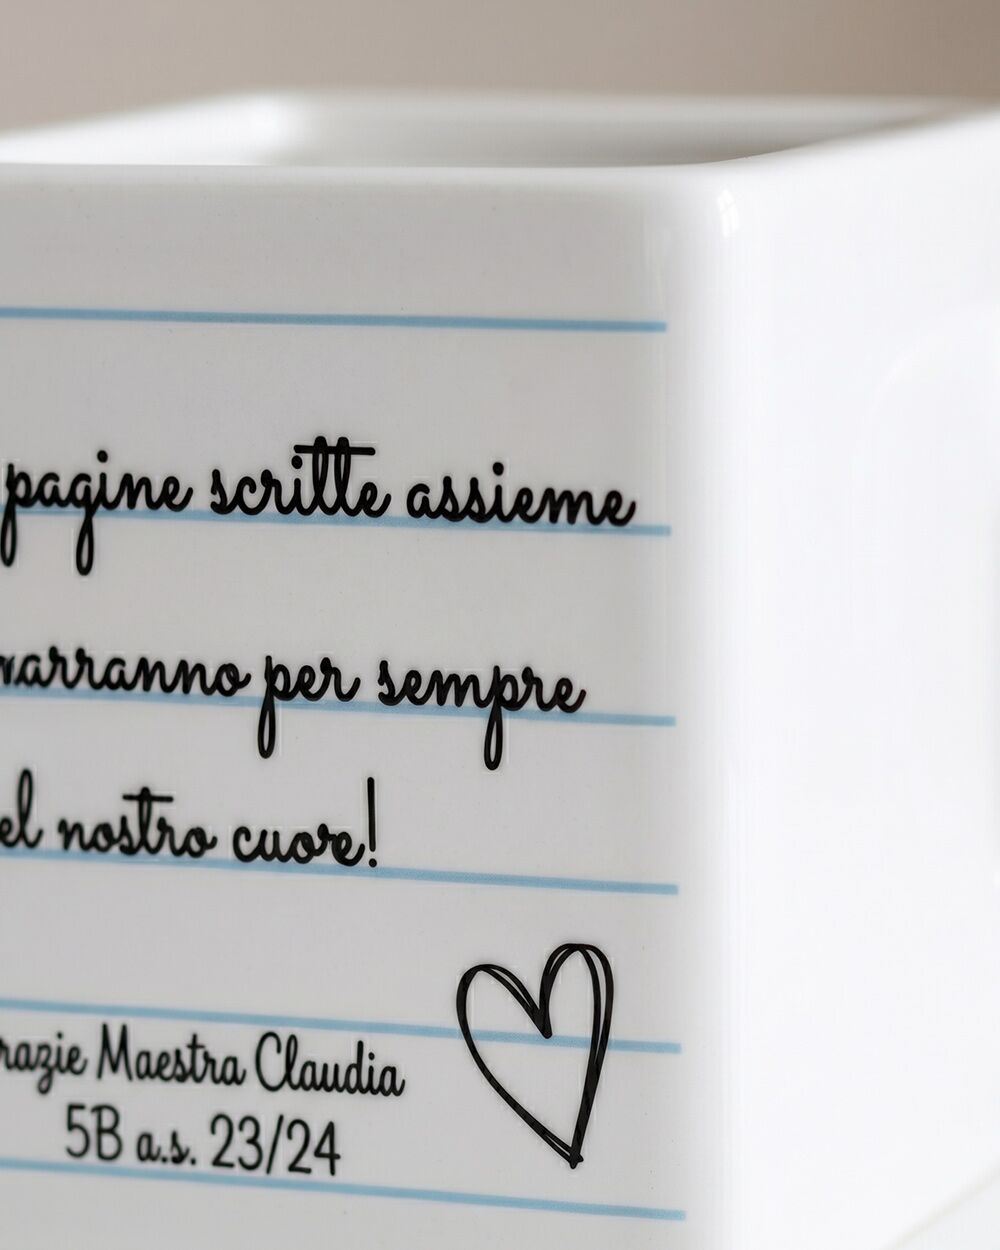 pagine scritte assieme
arranno per sempre
el nostro cuore!
razie Maestra Claudia
5B a.s. 23/24